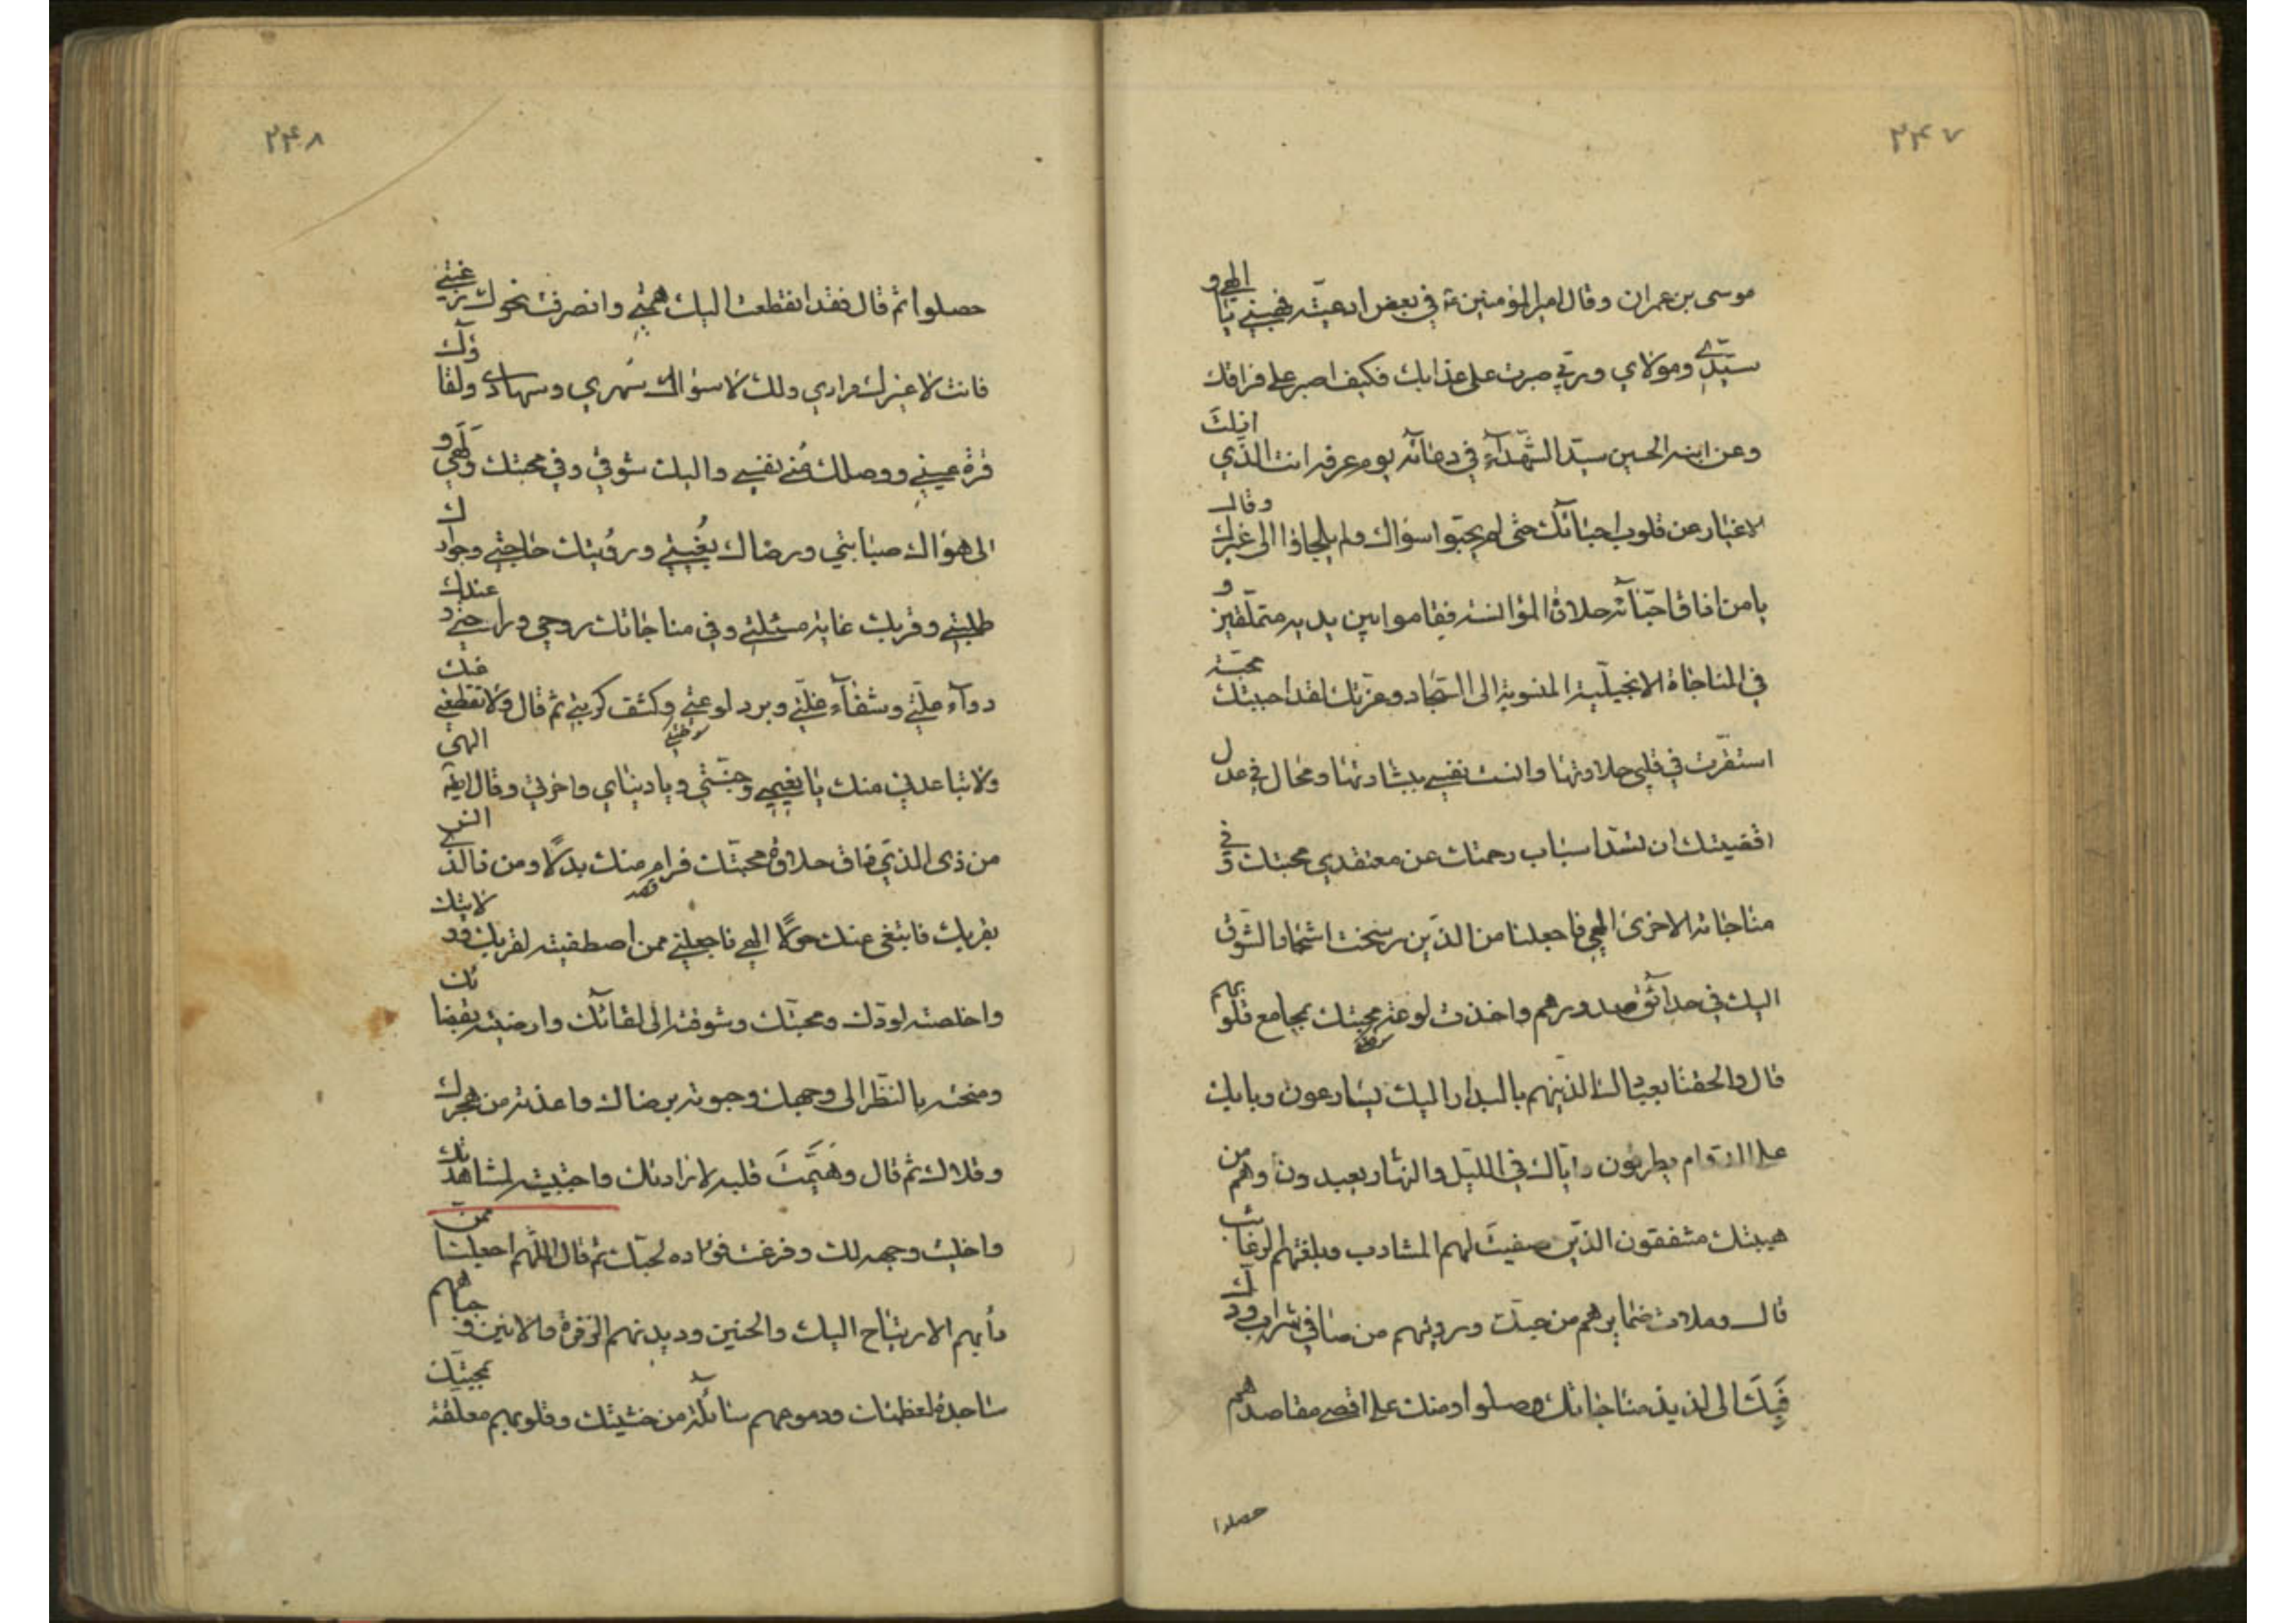 ۲۴۷
موسى بن عمران وقال امير المؤمنين ع في بعض ادعيته فهبني يا الهي و
سيدي ومولاي وربي صبرت على عذابك فكيف اصبر على فراقك
وعن ابنه الحسين سيد الشهدآء في دعائه يوم عرفه انت الذي ازلت
الاغيار عن قلوب احبائك حتى لم يحبوا سواك ولم يلجاؤا الى غيرك وقال
يا من اذاق احبّائه حلاوة المؤانسة فقاموا بين يديه متملقين و
في المناجاة الانجيلية المنسوبة الى السجاد وعزتك لقد احببتك محبّة
استقرت في قلبي حلاوتها وانست نفسي ببشارتها ومحال في عدل
اقضيتك ان تسد اسباب رحمتك عن معتقدي محبتك و في
مناجاته الاخرى الهي فاجعلنا من الذين رسخت اشجار الشوق
اليك في حدائق صدورهم واخذت لوعة محبتك بمجامع قلوبهم
قال والحقنا بعبادك الذينهم بالبدار اليك يسارعون وبابك
على الدوام يطرقون واياك في الليل والنهار يعبدون وهم من
هيبتك مشفقون الذين صفيت لهم المشارب وبلغتهم الرغائب
قال وملات ضمايرهم من حبك ورويتهم من صافي شراب ودك
فبك الى لذيذ مناجاتك وصلوا ومنك على اقصى مقاصدهم
حصلوا
۲۴۸
حصلوا ثم قال فقد انقطعت اليك همتي وانصرفت نحوك رغبتي
فانت لا غيرك مرادي ولك لا سواك سهري وسهادي ولقاؤك
قرة عيني ووصلك منى نفسي واليك شوقي وفي محبتك ولهي و
الى هواك صبابتي ورضاك بغيتي ورؤيتك حاجتي وجوارك
طلبتي وقربك غاية مسئلتي وفي مناجاتك روحي وراحتي وعندك
دوآء علتي وشفآء غلتي وبرد لوعتي وكشف كربتي ثم قال ولا تقطعني عنك
ولا تباعدني منك يا نعيمي وجنتي ويا دنياي واخرتي وقال ايضا الهي
من ذى الذي ذاق حلاوة محبتك فرام منك بدلا ومن ذا الذي انس
بقربك فابتغى عنك حولا الهي فاجعلني ممن اصطفيته لقربك وولايتك
واخلصته لودك ومحبتك وشوقته الى لقائك وارضيته بقضائك
ومنحته بالنظر الى وجهك وحبوته برضاك واعذته من هجرك
وقلاك ثم قال وهيّمت قلبه لارادتك واجتبيته لمشاهدتك
واخليت وجهه لك وفرغت فؤاده لحبك ثم قال اللهم اجعلنا ممن
دأبهم الارتياح اليك والحنين وديدنهم الزفرة والانين و جباههم
ساجدة لعظمتك ودموعهم سائلة من خشيتك وقلوبهم معلقة بمحبتك